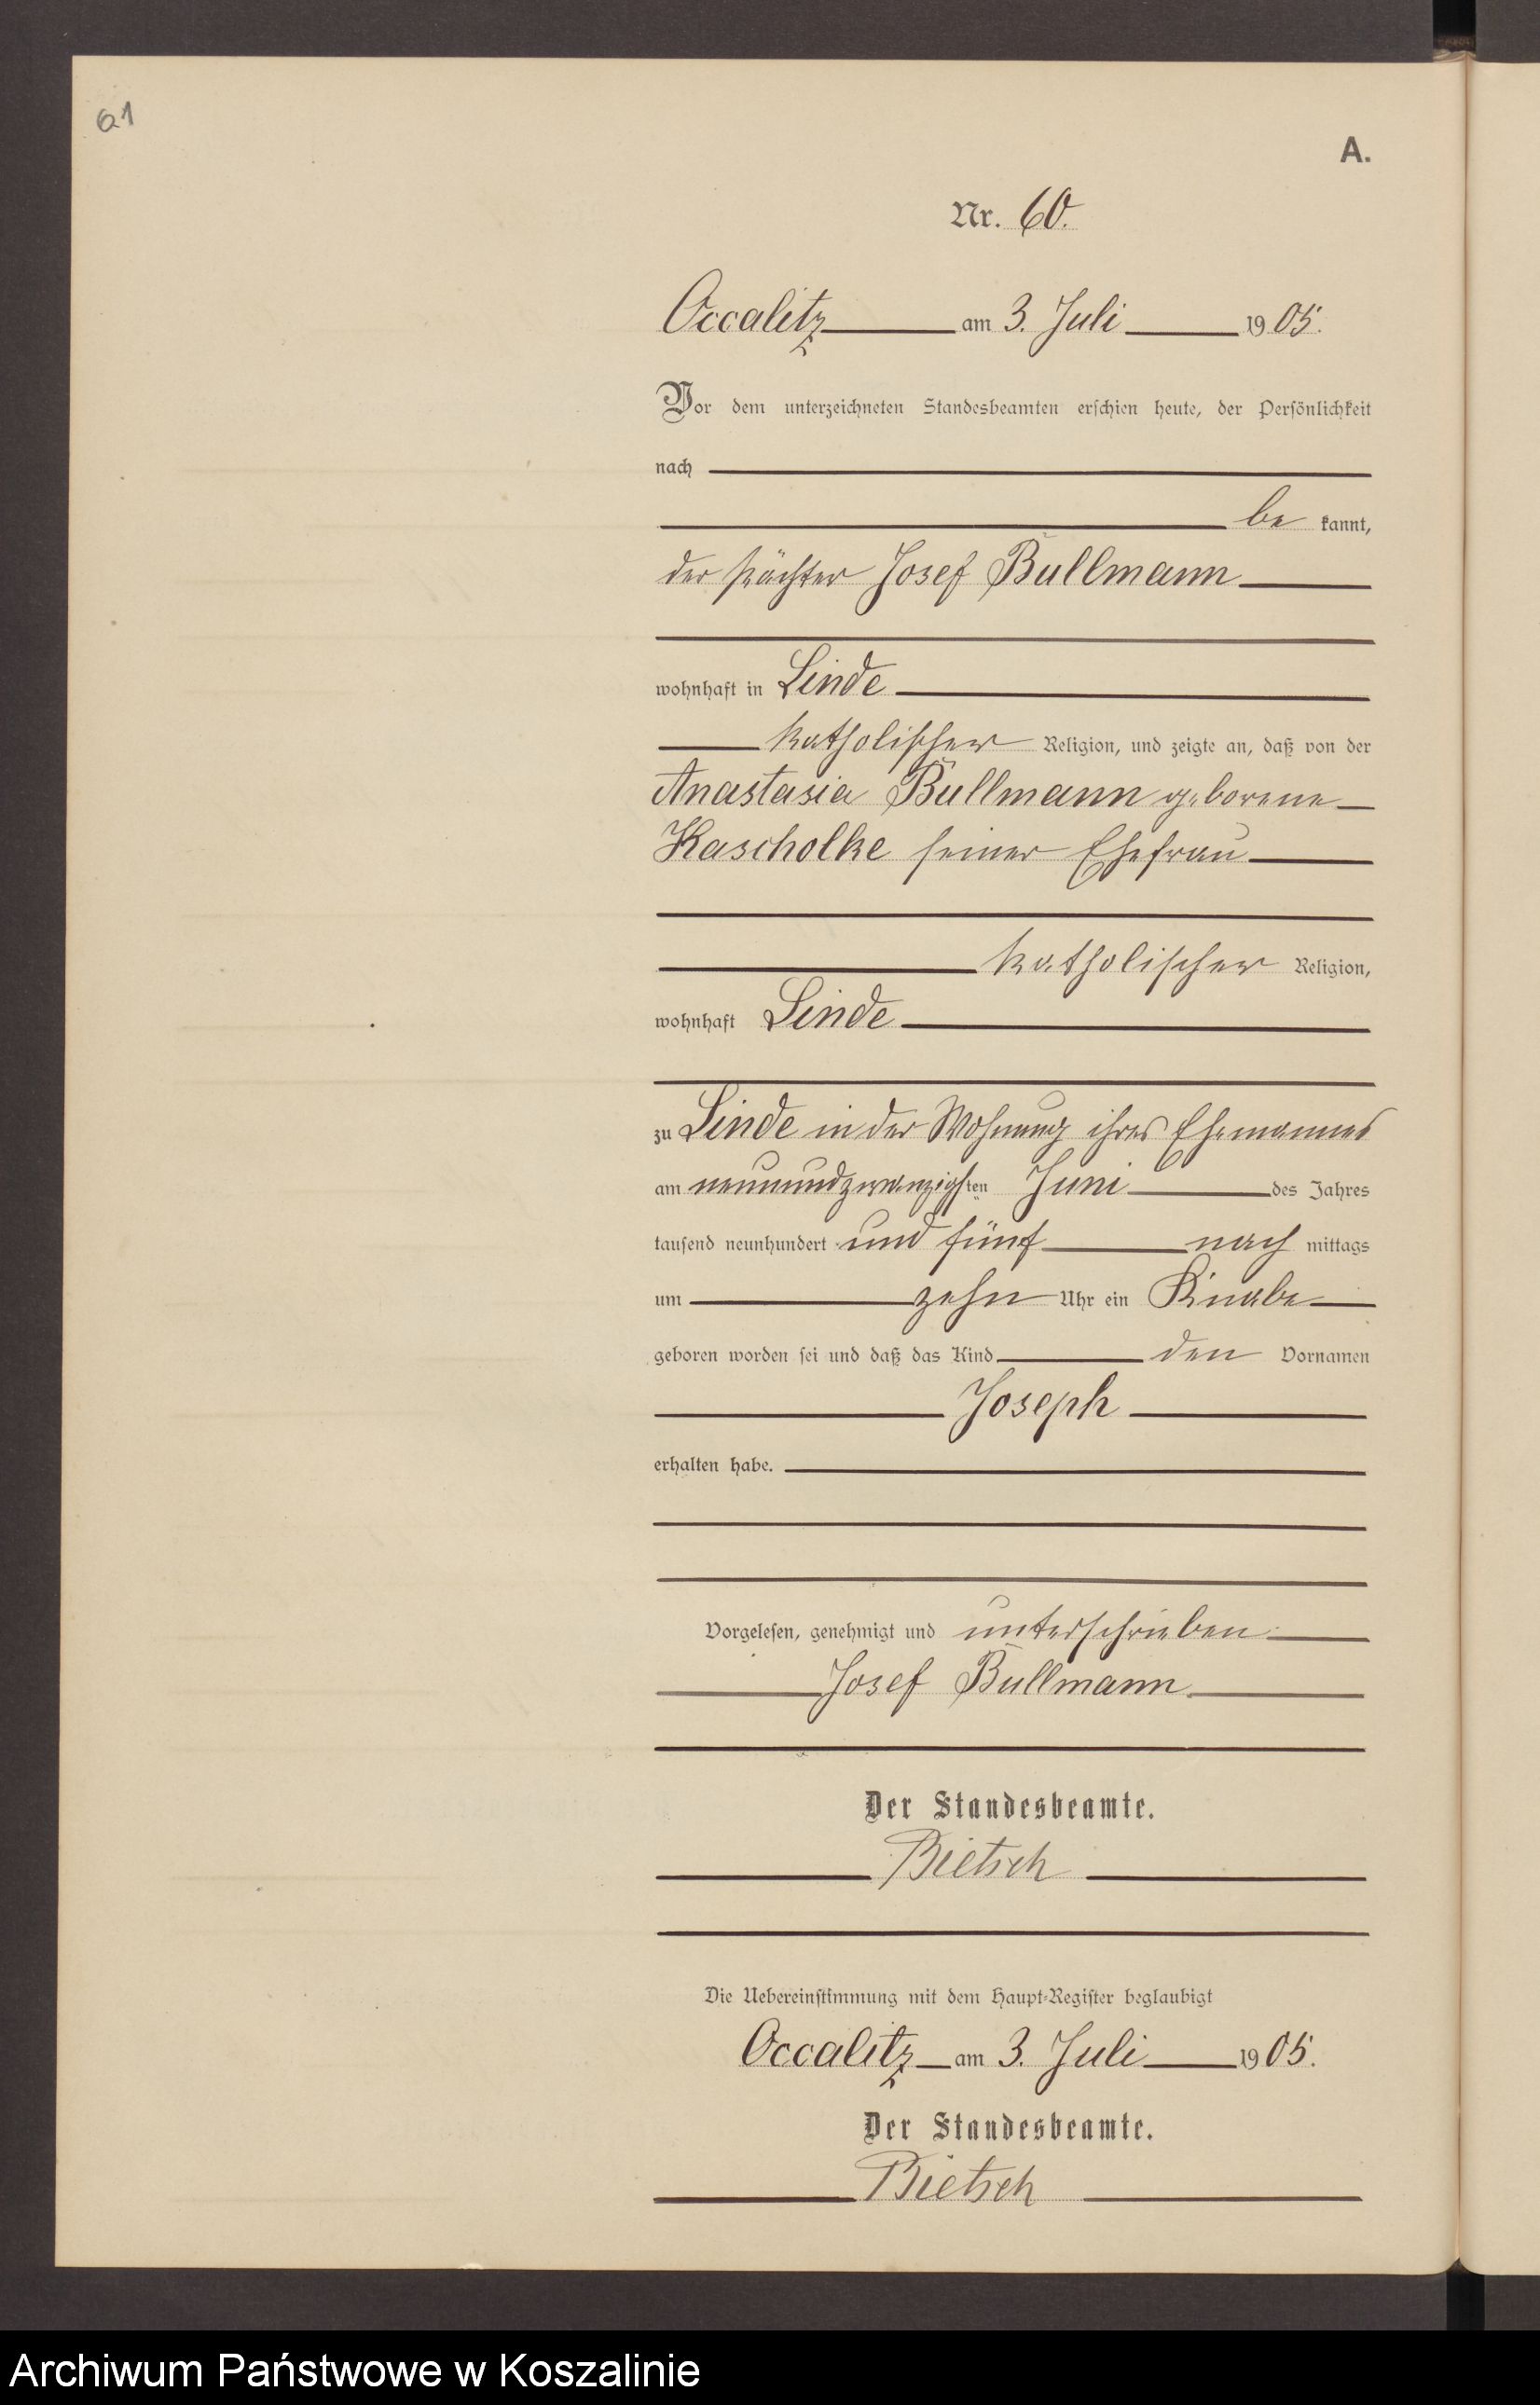 61
A.
Nr. 60.
Occalitz am 3. Juli 1905.
Vor dem unterzeichneten Standesbeamten erschien heute, der Persönlichkeit
nach
be kannt,
der Pächter Josef Bullmann
wohnhaft in Linde
katholischer Religion, und zeigte an, daß von der
Anastasia Bullmann geborene
Kascholke seiner Ehefrau
katholischer Religion,
wohnhaft Linde
zu Linde in der Wohnung ihres Ehemannes
am neunundzwanzigsten Juni des Jahres
tausend neunhundert und fünf nach mittags
um zehn Uhr ein Knabe
geboren worden sei und daß das Kind den Vornamen
Joseph
erhalten habe.
Vorgelesen, genehmigt und unterschrieben
Josef Bullmann
Der Standesbeamte.
Bietsch
Die Uebereinstimmung mit dem Haupt-Register beglaubigt
Occalitz am 3. Juli 1905.
Der Standesbeamte.
Bietsch
Archiwum Państwowe w Koszalinie